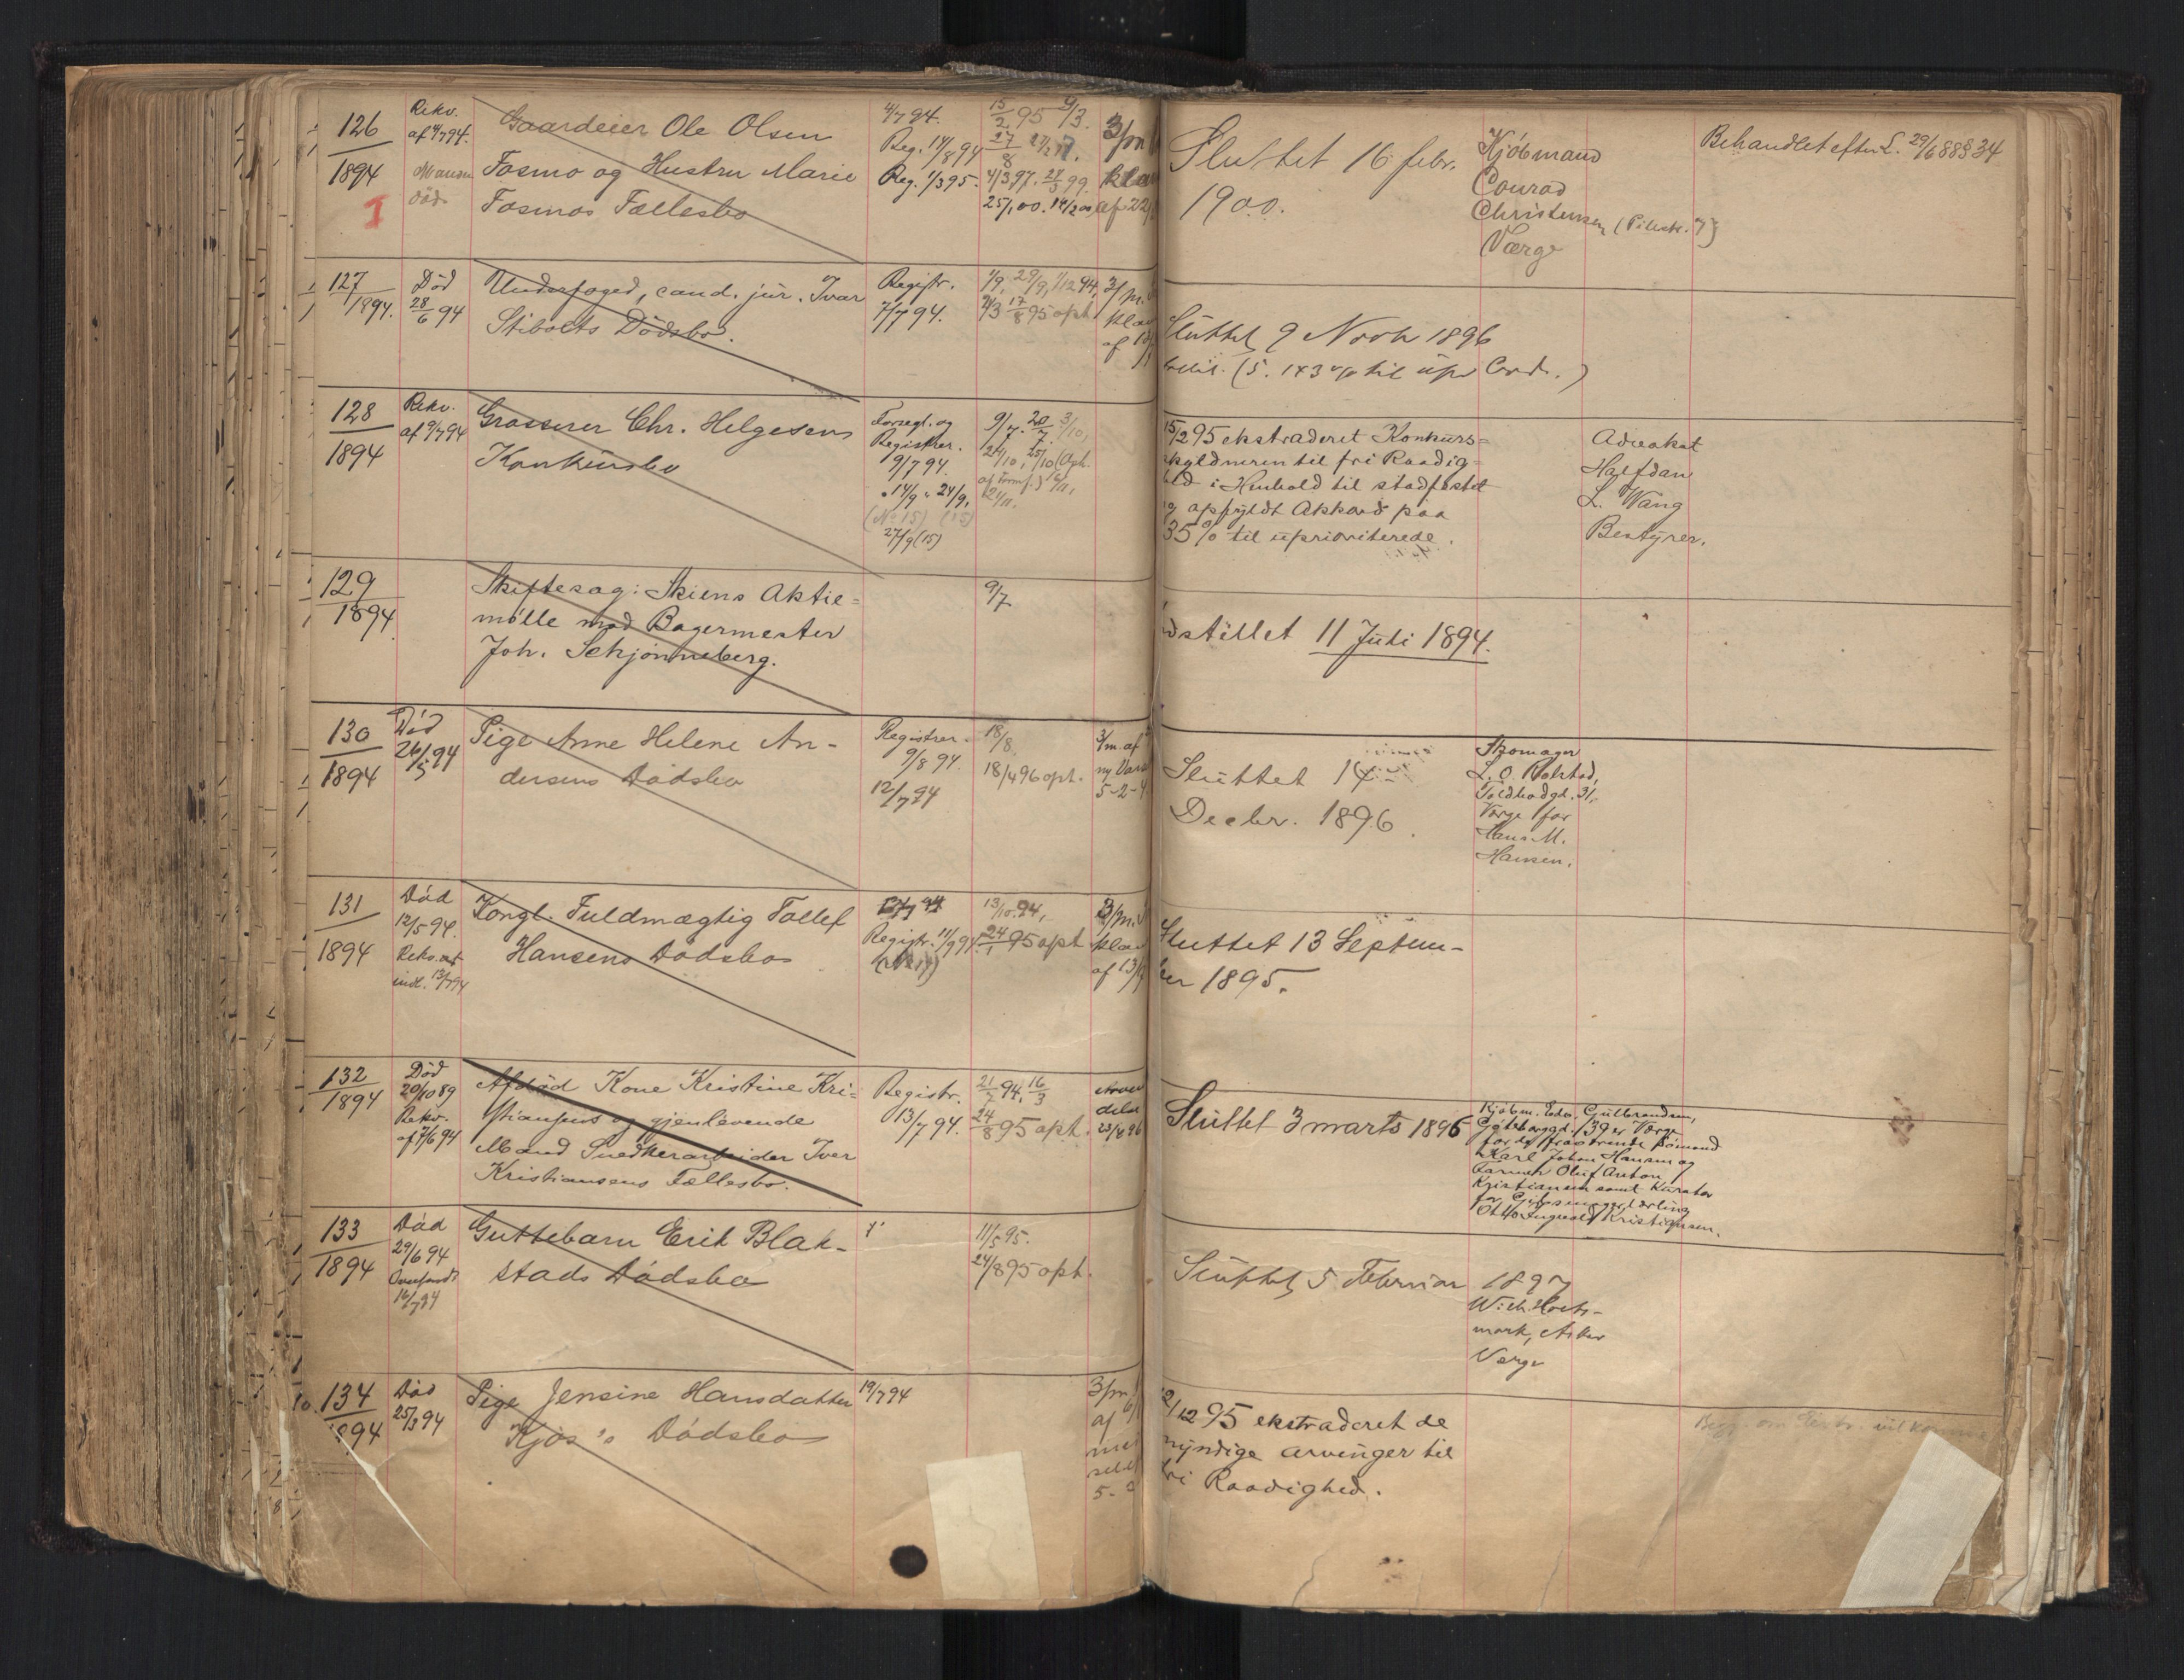 126
1894
I
Rekv.
af 4/7 94.
Manden
död
Gaardeier Ole Olsen
Fosmo og Hustru Marie
Fosmos Fællesbo
4/7 94.
Reg. 14/8 94
Reg. 1/3 95.
15/2 95 9/3.
27/8
4/3 97. 28/3 99.
25/1 00. 14/2 00
3/m
kla
af 22
Sluttet 16 febr.
1900.
Kjöbmand
Conrad
Christensen (Pilestr. 7)
Værge
Behandlet efter L. 29/6 88 § 34
127
1894.
Död
28/6 94
Underfoged, cand. jur. Ivar
Stibolts Dödsbo.
Registr.
7/7 94.
1/9, 29/9, 1/12 94,
9/3 17/8 95 opt.
3/m.
kla
af
Sluttet 9 Novbr 1896
(5.143 % til upr Cred.)
128
1894
Rekv.
af 9/7 94
Grosserer Chr. Helgesens
Konkursbo
Forsegl. og
Registrer.
9/7 94.
14/9, 24/9,
(No 15) (15)
27/9 (15)
9/7. 20/7. 3/10,
24/10, 25/10 (Opt.
af Formf.) 6/11,
24/11.
15/2 95 ekstraderet Konkurs=
kyldneren til fri Raadig=
hed i Henhold til stadfæstet
og opfyldt Akkord paa
35 % til uprioriterede.
Advokat
Halfdan
L. Wang
Bestyrer.
129
1894
Skiftesag: Skiens Aktie=
mölle mod Bagermester
Joh. Schjönneberg.
9/7
dstillet 11 Juli 1894.
130
1894
Död
26/5 94
Pige Anne Helene An-
dersens Dödsbo
Registrer.
9/8 94.
12/7 94
18/8.
18/4 96 opt.
3/m. af
ny
5-2-4
Sluttet 14
Decbr. 1896.
Skomager
L. O. Rolstad,
Toldbodgd. 31,
Værge for
Hans M.
Hansen.
131
1894
Död
12/5 94.
Rekv. af
indl. 13/7 94
Kongl. Fuldmægtig Tollef
Hansens Dödsbo
Registr. 11/9 94.
13/10 94,
24/1 95 opt
3/m.
kla
af 13/
Sluttet 13 Septem-
ber 1895.
132
1894
Död
20/10 89
Rekv.
af 7/6 94
Afdöd Kone Kristine Kri-
stiansens og gjenlevende
Mand Snedkerarbeider Iver
Kristiansens Fællesbo.
Registr.
13/7 94.
21/7 94, 16/3
24/8 95 opt.
Sluttet 3 marts 1896
Kjöbm. Edv. Gulbrandsen,
Göteborggd. 39 er Værge
for de fraværende Sömand
Karl Johan Hansen og
Farmer Oluf Anton
Kristiansen samt Kurator
for Gibsmagerlærling
Otto Ingvald Kristiansen.
133
1894
Död
29/6 94
16/7 94
Guttebarn Erik Blak-
stads Dödsbo
11/5 95.
24/8 95 opt.
Sluttet 5 Februar 1897
mark, Asker
Værge
134
1894
Död
25/3 94
Pige Jensine Hansdatter
Kjös's Dödsbo
19/7 94
3/m
af
5-2
2/12 95 ekstraderet de
myndige arvinger til
fri Raadighed.